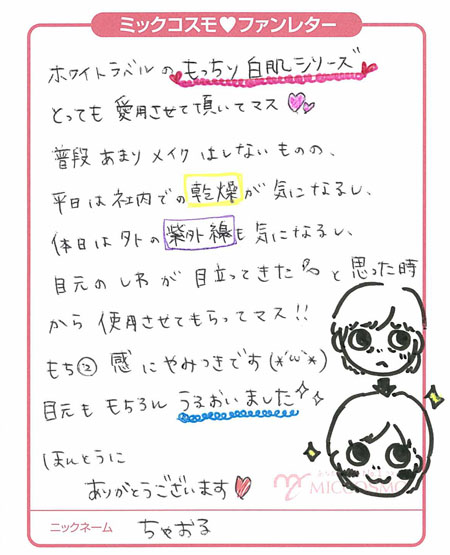 ミックコスモ♥ファンレター
ホワイトラベルのもっちり白肌シリーズ
とっても愛用させて頂いてマス
普段あまりメイクはしないものの、
平日は社内での乾燥が気になるし、
休日は外の紫外線も気になるし、
目元のしわが目立ってきたなと思った時
から使用させてもらってマス!!
もち②感にやみつきです(*'ω'*)
目元ももちろんうるおいました
ほんとうに
ありがとうございます♥
MICCOSMO
ニックネーム ちゃおる